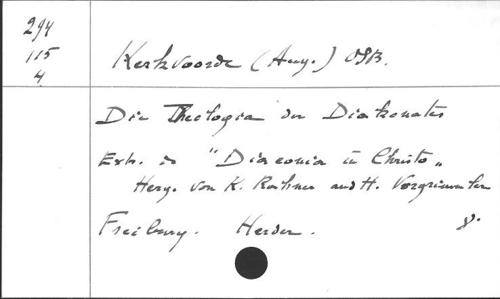 294
115
4
Kerkvoorde (Aug.) OSB.
Die Theologie der Diakonates
Extr. de "Diaconia in Christo„
Herg. von K. Rahner and H. Vorgrimmler
Freiburg. Herder. 8.